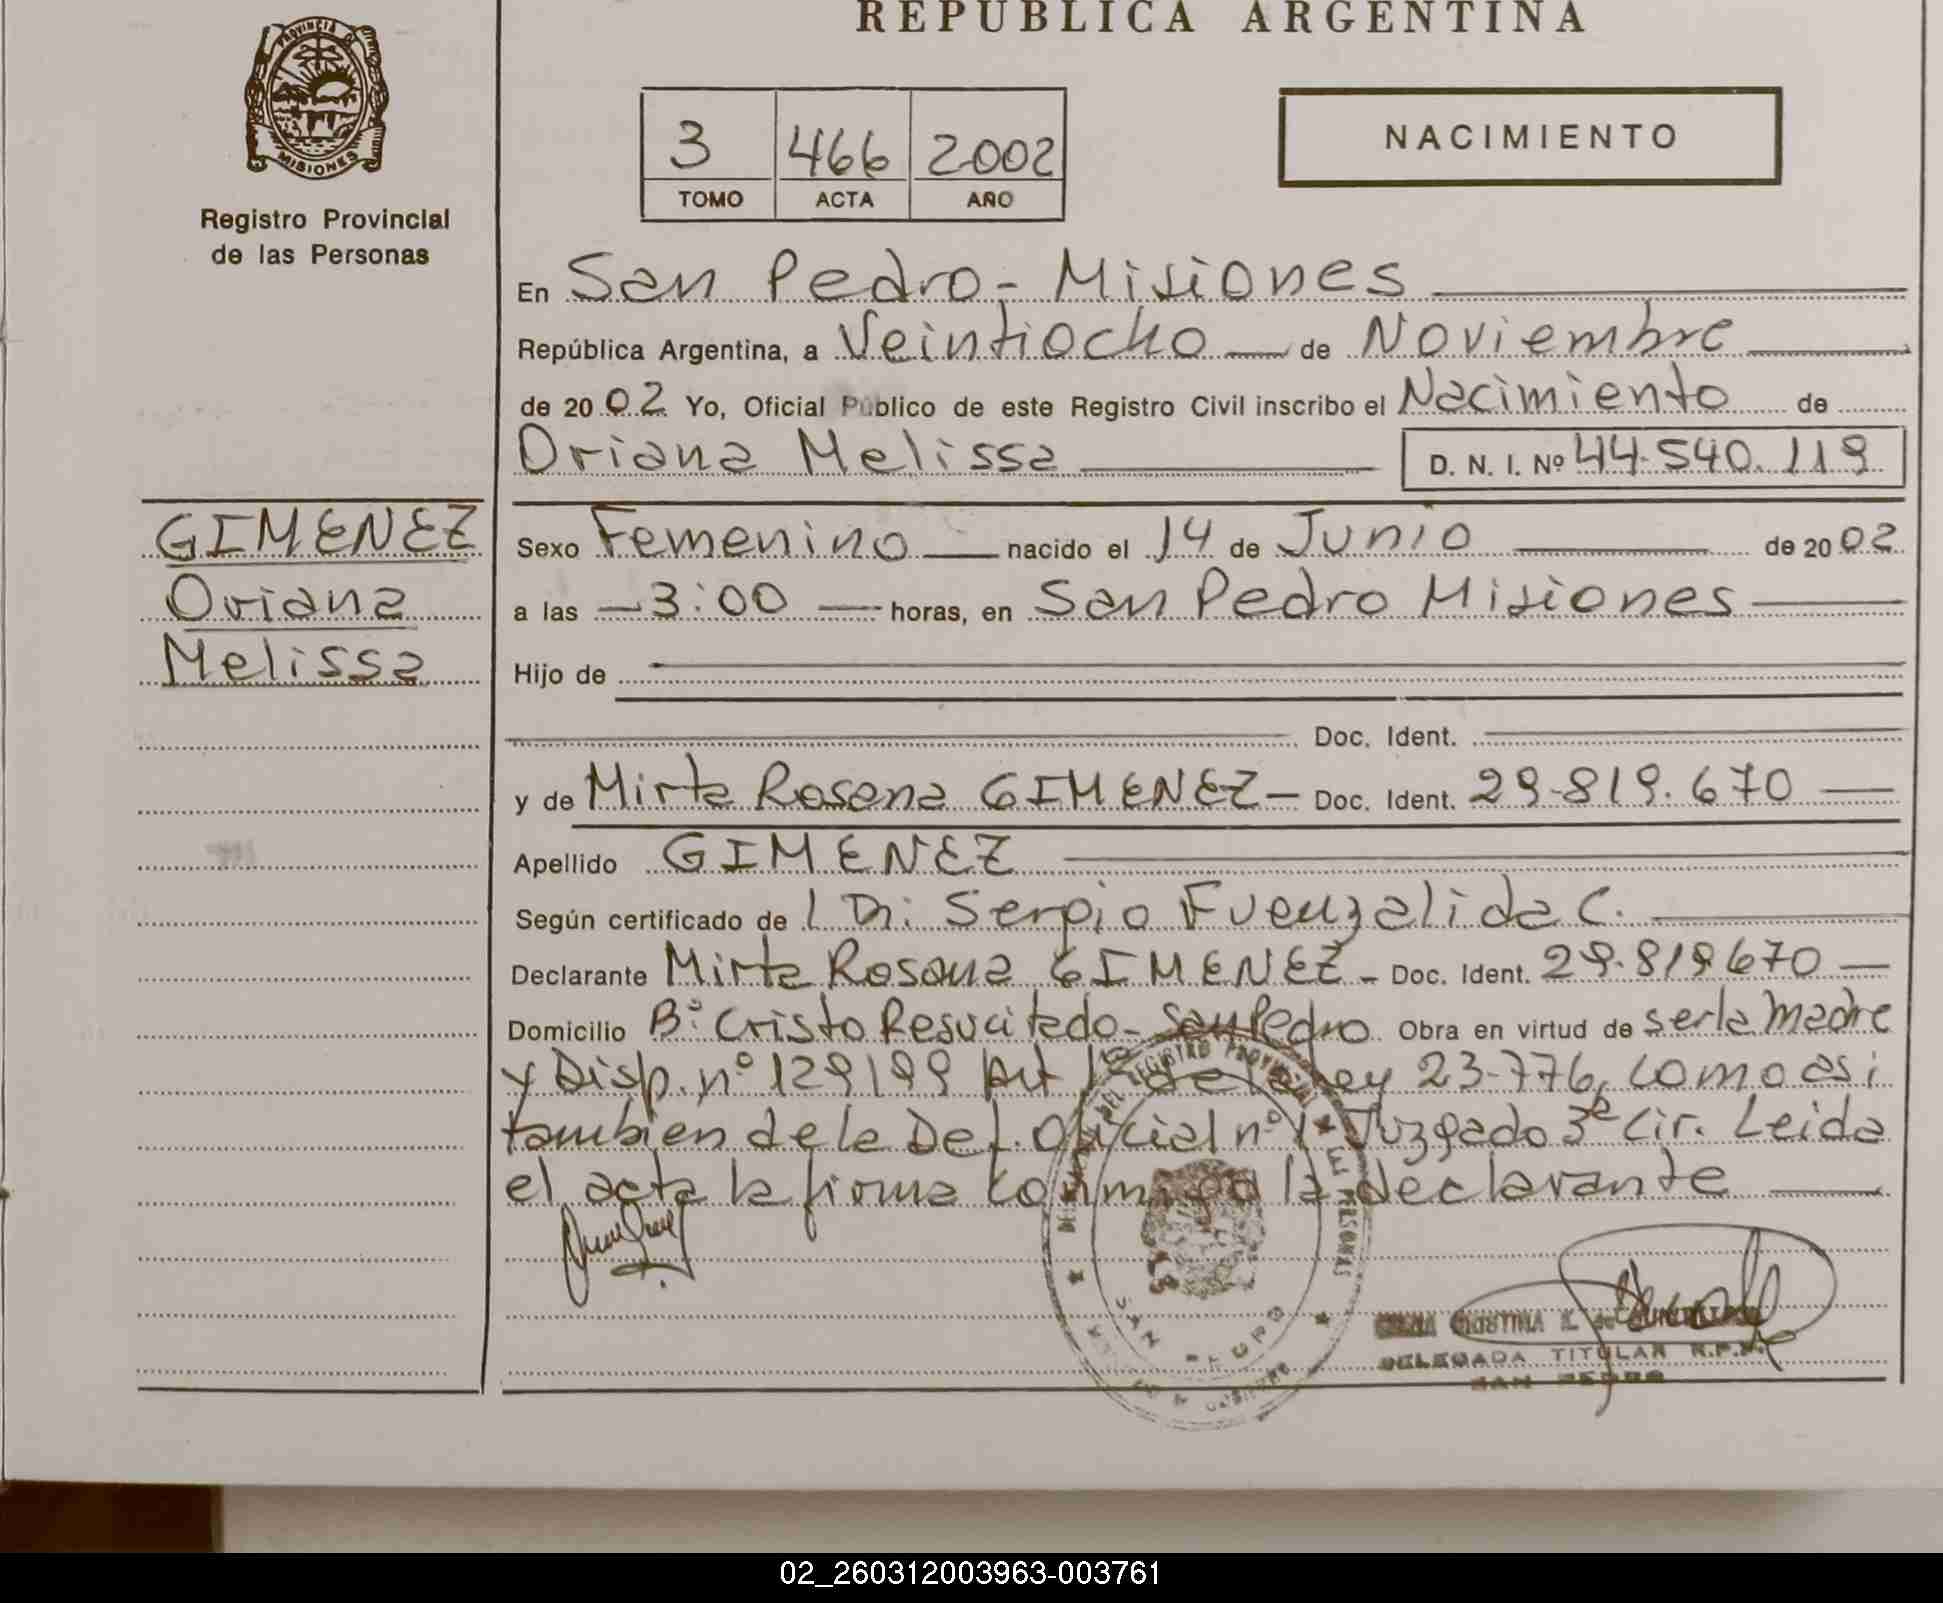 REPUBLICA ARGENTINA
PROVINCIA DE
MISIONES
Registro Provincial
de las Personas
3 466 2002
TOMO ACTA AÑO
NACIMIENTO
En San Pedro - Misiones
República Argentina, a Veintiocho de Noviembre
de 2002 Yo, Oficial Público de este Registro Civil inscribo el Nacimiento de
Oriana Melissa D. N. I. Nº 44.540.119
GIMENEZ
Oriana
Melissa
Sexo Femenino nacido el 14 de Junio de 2002
a las 3:00 horas, en San Pedro Misiones
Hijo de
Doc. Ident.
y de Mirta Rosana GIMENEZ - Doc. Ident. 29.819.670
Apellido GIMENEZ
Según certificado de Dr: Sergio Fuenzalida C.
Declarante Mirta Rosana GIMENEZ - Doc. Ident. 29.819670
Domicilio Bº Cristo Resucitado - San Pedro. Obra en virtud de ser la madre
y Disp. nº 129/99 Art de la Ley 23.776, como asi
tambien de la Def. Oficial nº 1 Juzgado 3ª Cir. Leida
el acta la firma conmigo la declarante
DEL REGISTRO PROVINCIAL DE PERSONAS
SAN PEDRO
MISIONES
DELEGADA TITULAR R.P.P.
SAN PEDRO
02_260312003963-003761